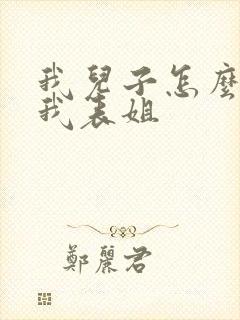 我兒子怎麼
我表姐
鄭麗君